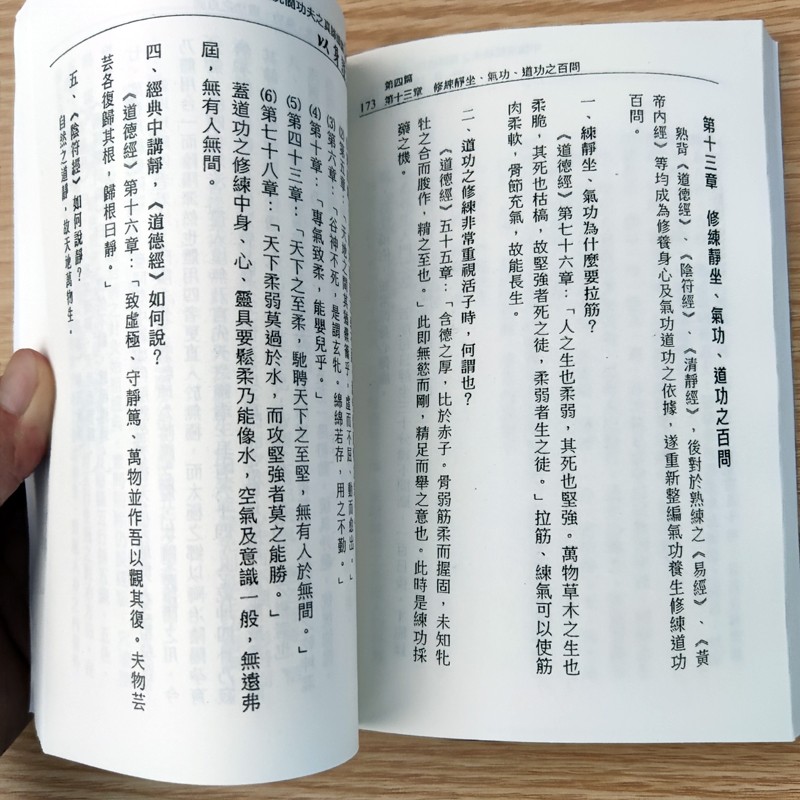 第四篇
第十三章　修練靜坐、氣功、道功之百問
173
第十三章　修練靜坐、氣功、道功之百問
熟背《道德經》、《陰符經》、《清靜經》，後對於熟練之《易經》、《黃
帝內經》等均成為修養身心及氣功道功之依據，遂重新整編氣功養生修練道功
百問。
一、練靜坐、氣功為什麼要拉筋？
《道德經》第七十六章：「人之生也柔弱，其死也堅強。萬物草木之生也
柔脆，其死也枯槁，故堅強者死之徒，柔弱者生之徒。」拉筋、練氣可以使筋
肉柔軟，骨節充氣，故能長生。
二、道功之修練非常重視活子時，何謂也？
《道德經》五十五章：「含德之厚，比於赤子。骨弱筋柔而握固，未知牝
牡之合而朘作，精之至也。」此即無慾而剛，精足而舉之意也。此時是練功採
藥之機。
功夫之真
(2)第五章：「天地之間其猶橐籥乎，虛而不屈，動而愈出。」
(3)第六章：「谷神不死，是謂玄牝。綿綿若存，用之不勤。」
(4)第十章：「專氣致柔，能嬰兒乎。」
(5)第四十三章：「天下之至柔，馳聘天下之至堅，無有人於無間。」
(6)第七十八章：「天下柔弱莫過於水，而攻堅強者莫之能勝。」
蓋道功之修練中身、心、靈具要鬆柔乃能像水，空氣及意識一般，無遠弗
屆，無有人無間。
四、經典中講靜，《道德經》如何說？
《道德經》第十六章：「致虛極、守靜篤、萬物並作吾以觀其復。夫物芸
芸各復歸其根，歸根曰靜。」
五、《陰符經》如何說靜？
自然之道靜，故天地萬物生，